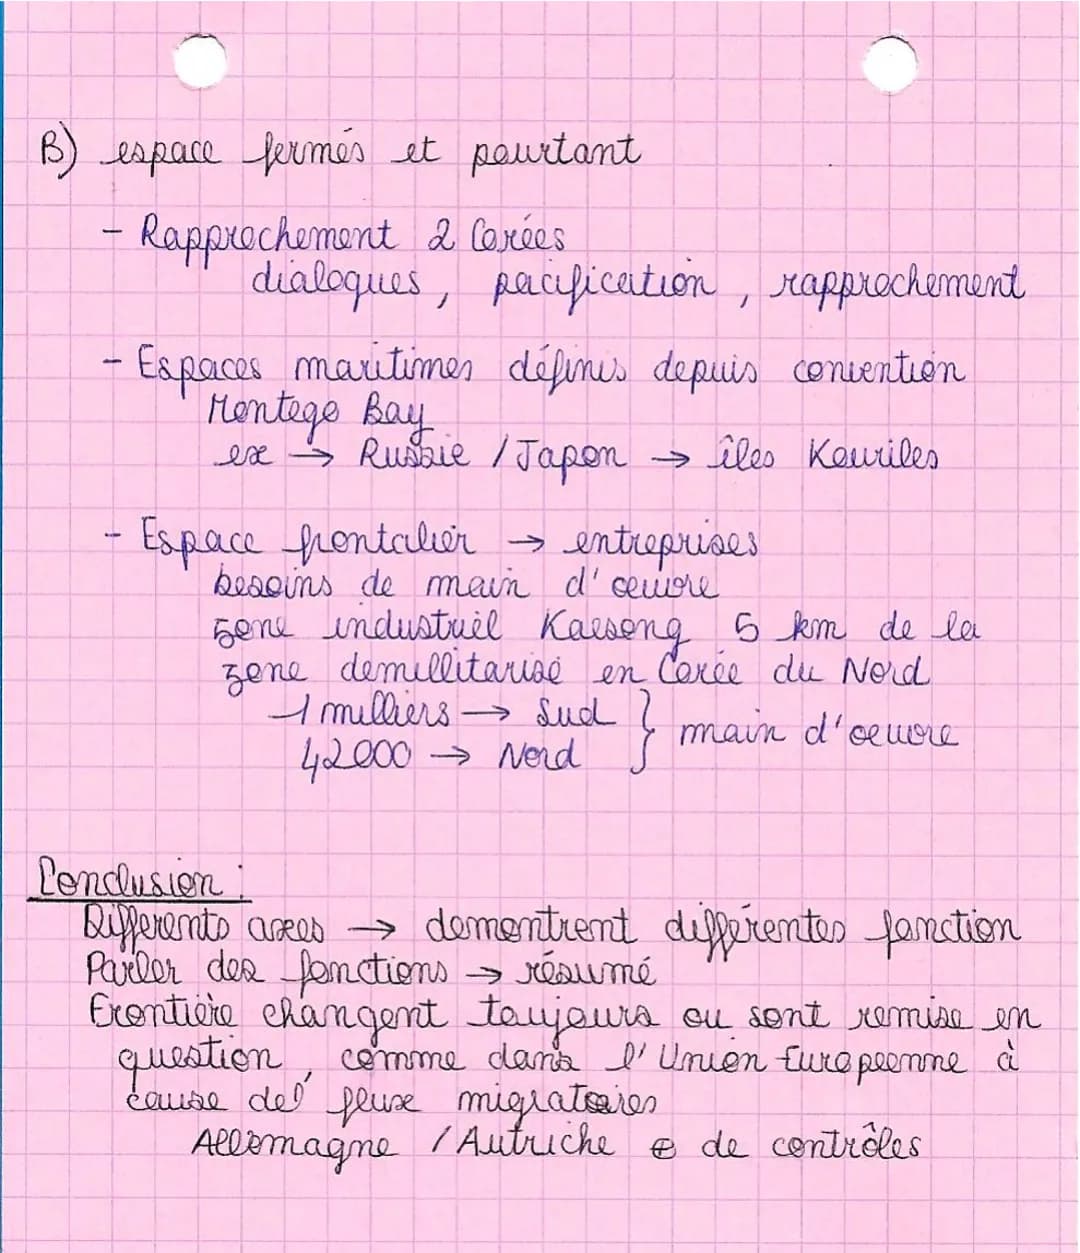 B) espace fermés et pourtant
- Rapprochement 2 Corées
dialogues, pacification, rapprochement
- Espaces maritimes définis depuis convention
Montego Bay
ex → Russie / Japon → îles Kouriles
- Espace frontalier → entreprises
besoins de main d'oeuvre
zone industriel Kaesong 5 km de la
zone demillitarisé en Corée du Nord
1 milliers → Sud } main d'oeuvre
42000 → Nord
Conclusion :
Differents axes → demontrent différentes fonction
Parler des fonctions → résumé
Frontière changent toujours ou sont remise en
question, comme dans l'Union Européenne à
cause des flux migratoires
Allemagne / Autriche ⊕ de contrôles